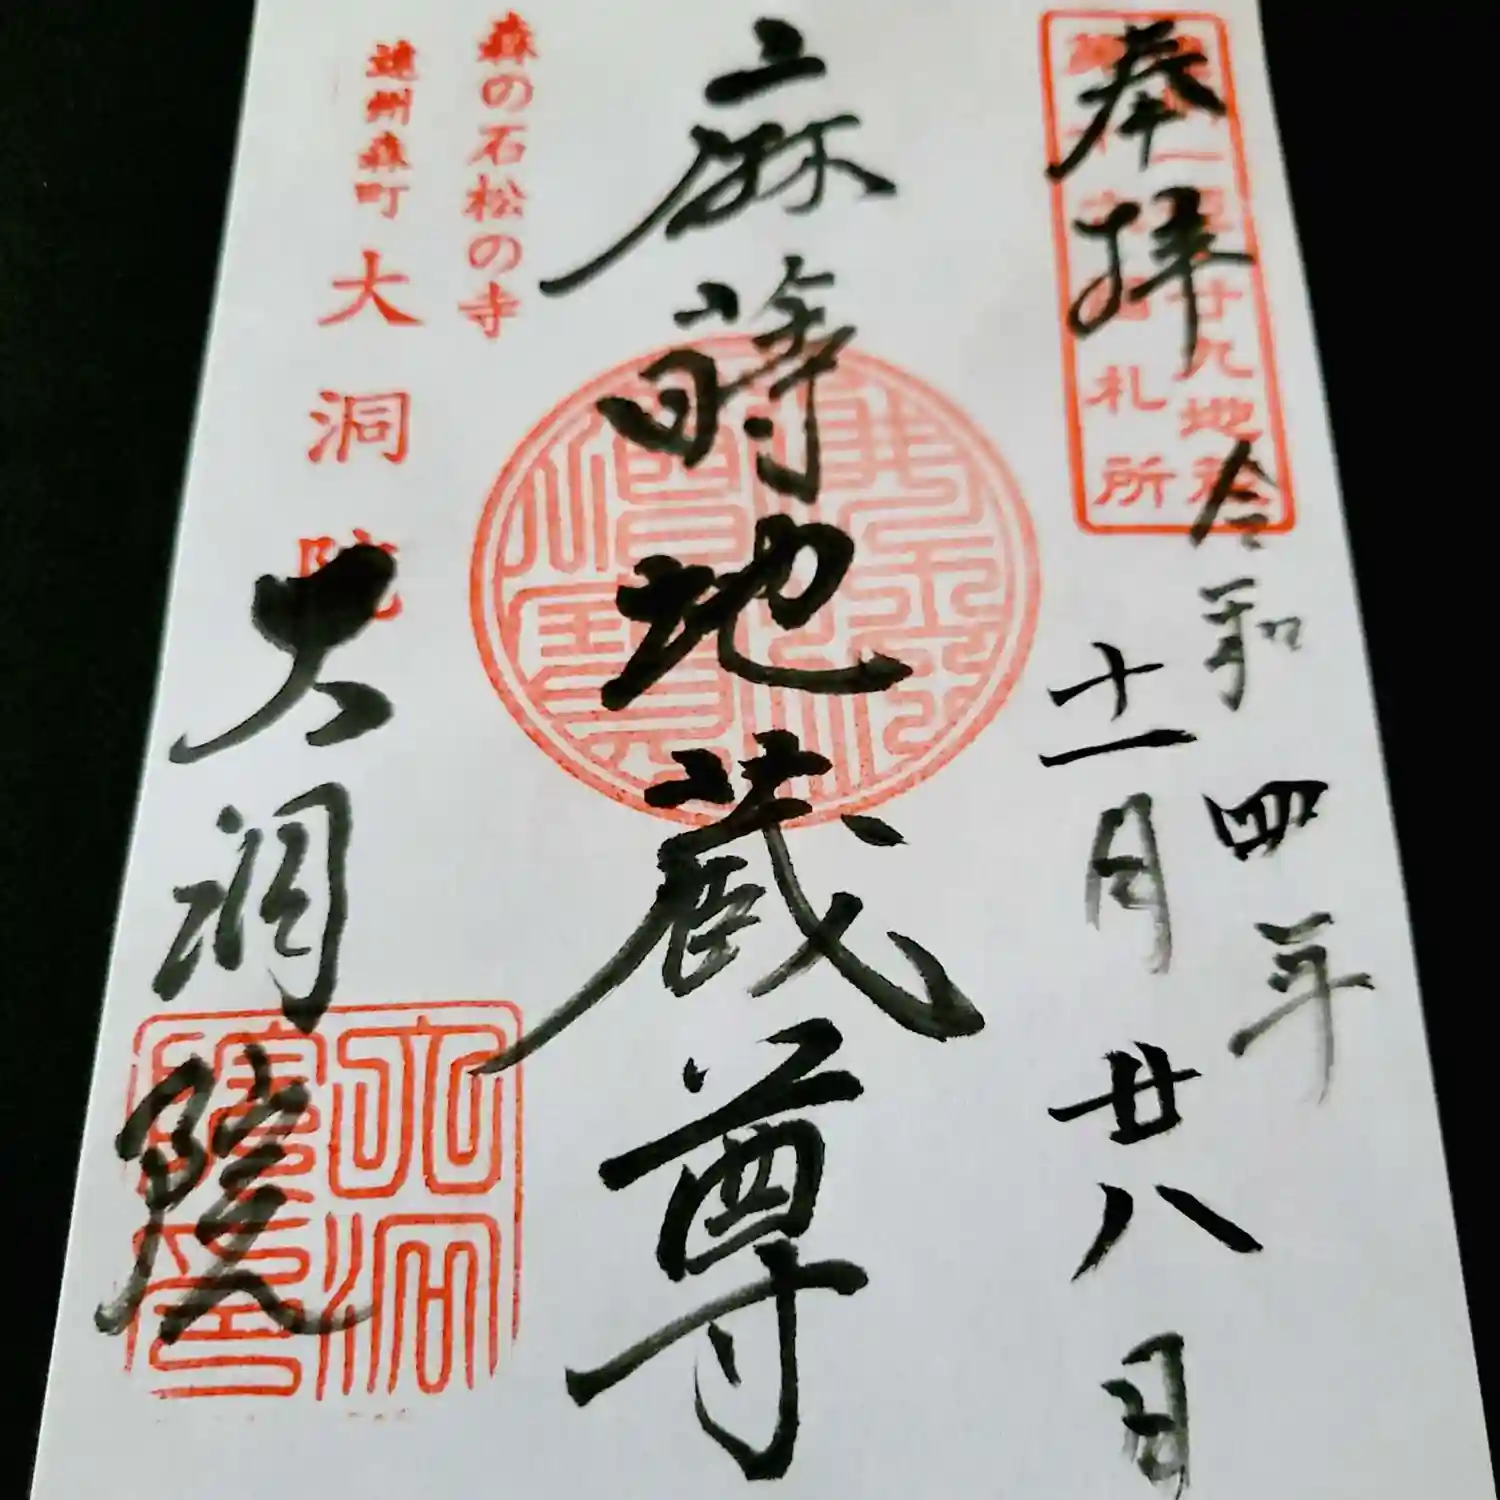 奉拝
令和四年
十一月廿八日
札所
麻蒔地蔵尊
森の石松の寺
遠州森町 大洞院
大洞院